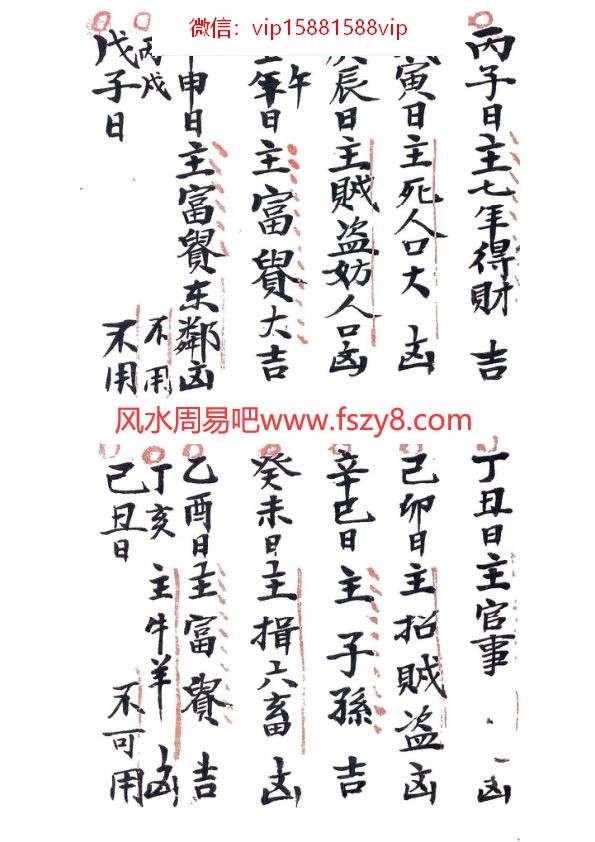 微信：vip15881588vip
丙子日主七年得財 吉
寅日主死人口大 凶
辰日主賊盗妨人口凶
午日主富貴大吉
申日主富貴东鄰凶
丙戌 不用
戊子日 不用
风水周易吧www.fszy8.com
丁丑日主官事 凶
己卯日主招賊盗 凶
辛巳日主子孫 吉
癸未日主損六畜 凶
乙酉日主富貴 吉
丁亥 主牛羊 凶
己丑日 不可用